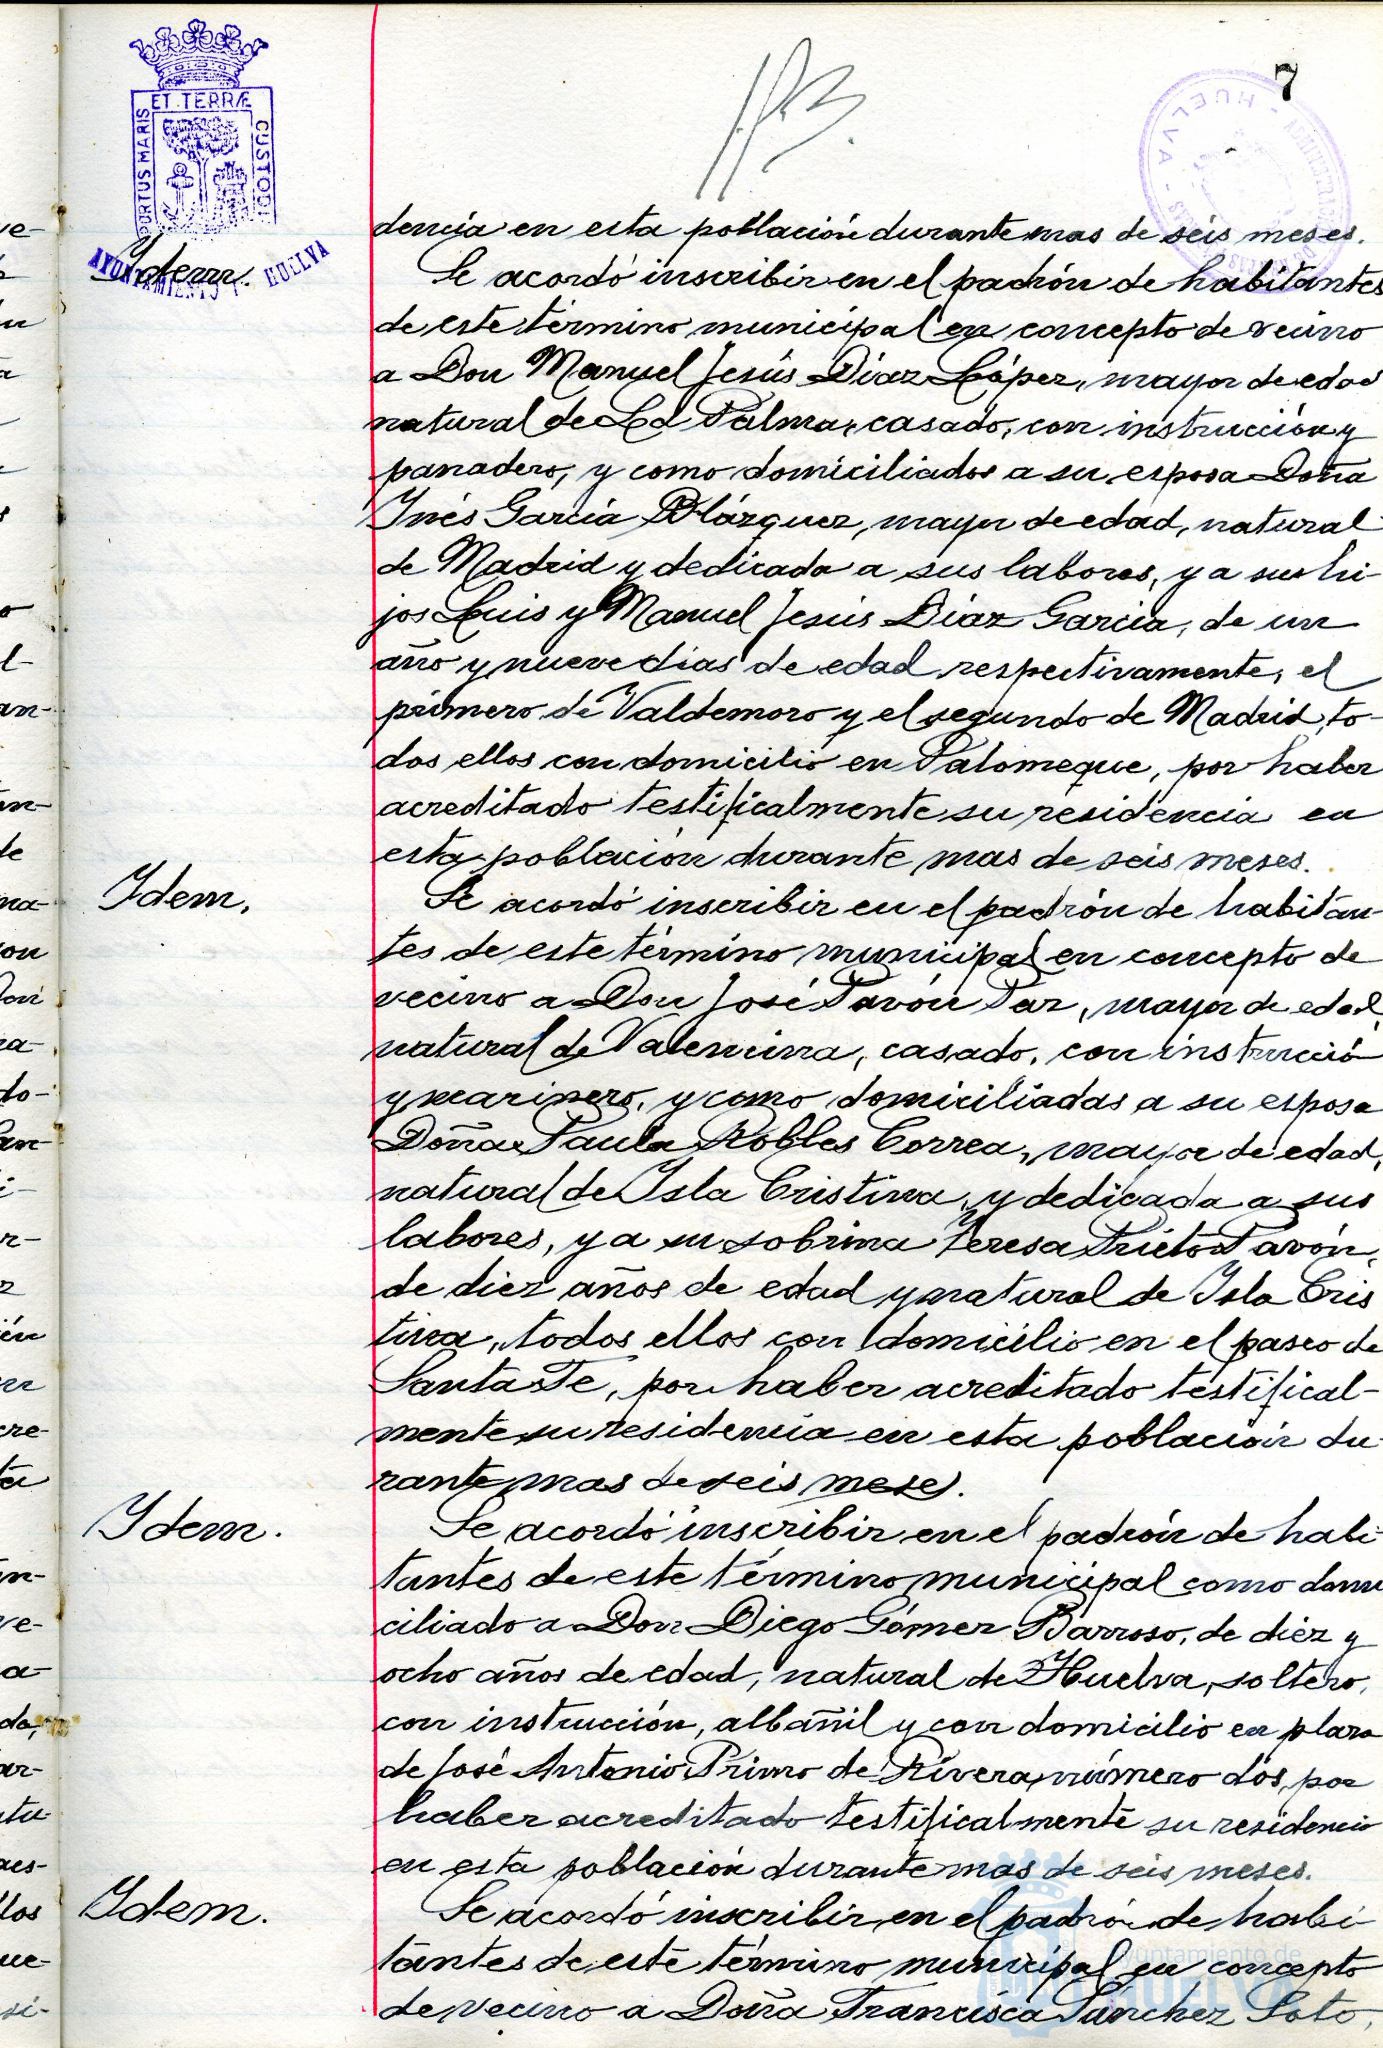 7
ET TERRÆ
PORTUS MARIS
CUSTODI
AYUNTAMIENTO DE HUELVA
HUELVA
dencia en esta población durante mas de seis meses.
Idem.
Se acordó inscribir en el padrón de habitantes
de este término municipal en concepto de vecino
a Don Manuel Jesús Díaz López, mayor de edad
natural de La Palma, casado, con instrucción y
panadero, y como domiciliados a su esposa Doña
Inés García Blázquez, mayor de edad, natural
de Madrid y dedicada a sus labores, y a sus hi-
jos Luis y Manuel Jesús Díaz García, de un
año y nueve dias de edad respectivamente, el
primero de Valdemoro y el segundo de Madrid, to-
dos ellos con domicilio en Palomeque, por haber
acreditado testificalmente su residencia en
esta población durante mas de seis meses.
Idem.
Se acordó inscribir en el padrón de habitan
tes de este término municipal en concepto de
vecino a Don José Pavón Paz, mayor de edad,
natural de Valencina, casado, con instrucción
y marinero, y como domiciliadas a su esposa
Doña Paula Robles Correa, mayor de edad,
natural de Isla Cristina, y dedicada a sus
labores, y a su sobrina Teresa Prieto Pavón,
de diez años de edad y natural de Isla Cris
tina, todos ellos con domicilio en el paseo de
Santa Fe, por haber acreditado testifical-
mente su residencia en esta población du-
rante mas de seis meses.
Idem.
Se acordó inscribir en el padrón de habi-
tantes de este término municipal como domi
ciliado a Don Diego Gómez Barroso, de diez y
ocho años de edad, natural de Huelva, soltero,
con instrucción, albañil y con domicilio en plaza
de José Antonio Primo de Rivera, número dos, por
haber acreditado testificalmente su residencia
en esta población durante mas de seis meses.
Idem.
Se acordó inscribir en el padrón de habi-
tantes de este término municipal en concepto
de vecino a Doña Francisca Sánchez Soto,
Ayuntamiento de
HUELVA